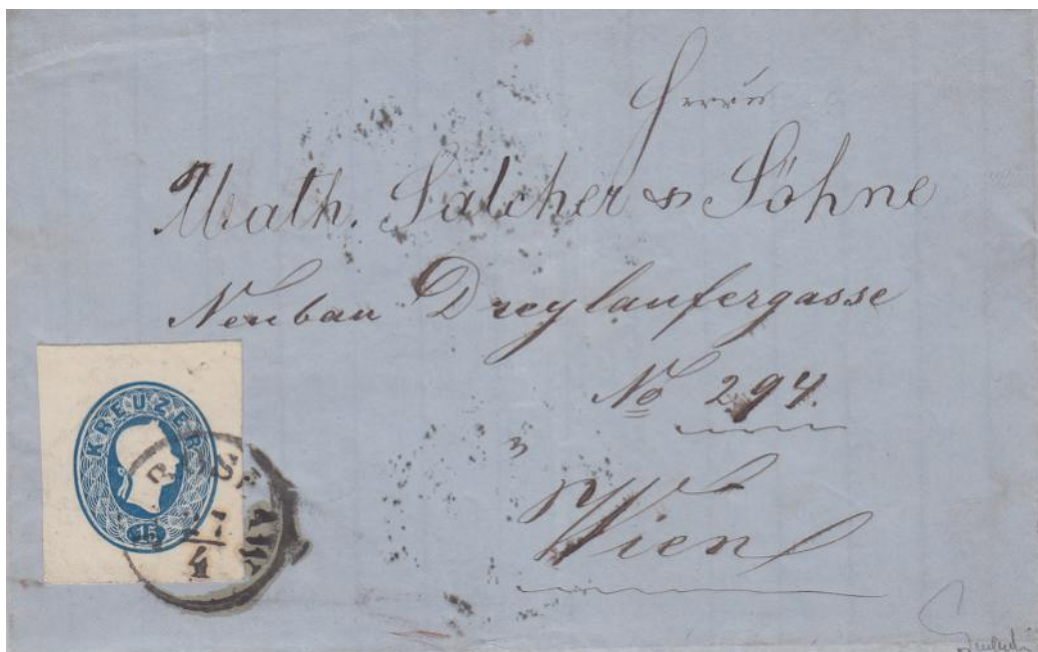 Herrn
Math. Salcher & Söhne
Neubau Dreylaufergasse
No 294.
Wien
KREUZER
15
4